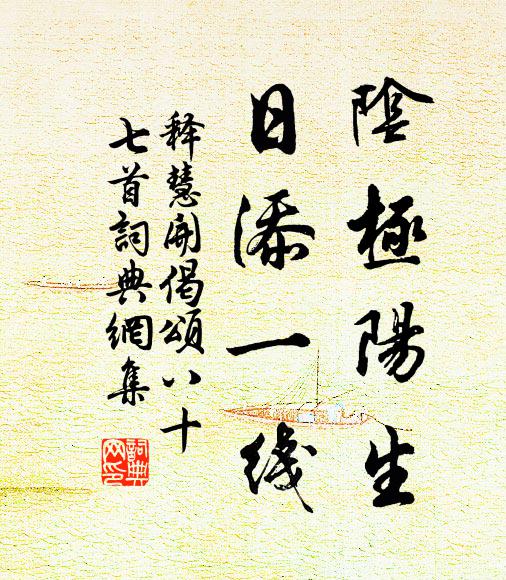 陰極陽生
日添一綫
释慧開偈頌八十
七首詞典網集
詞典
网印